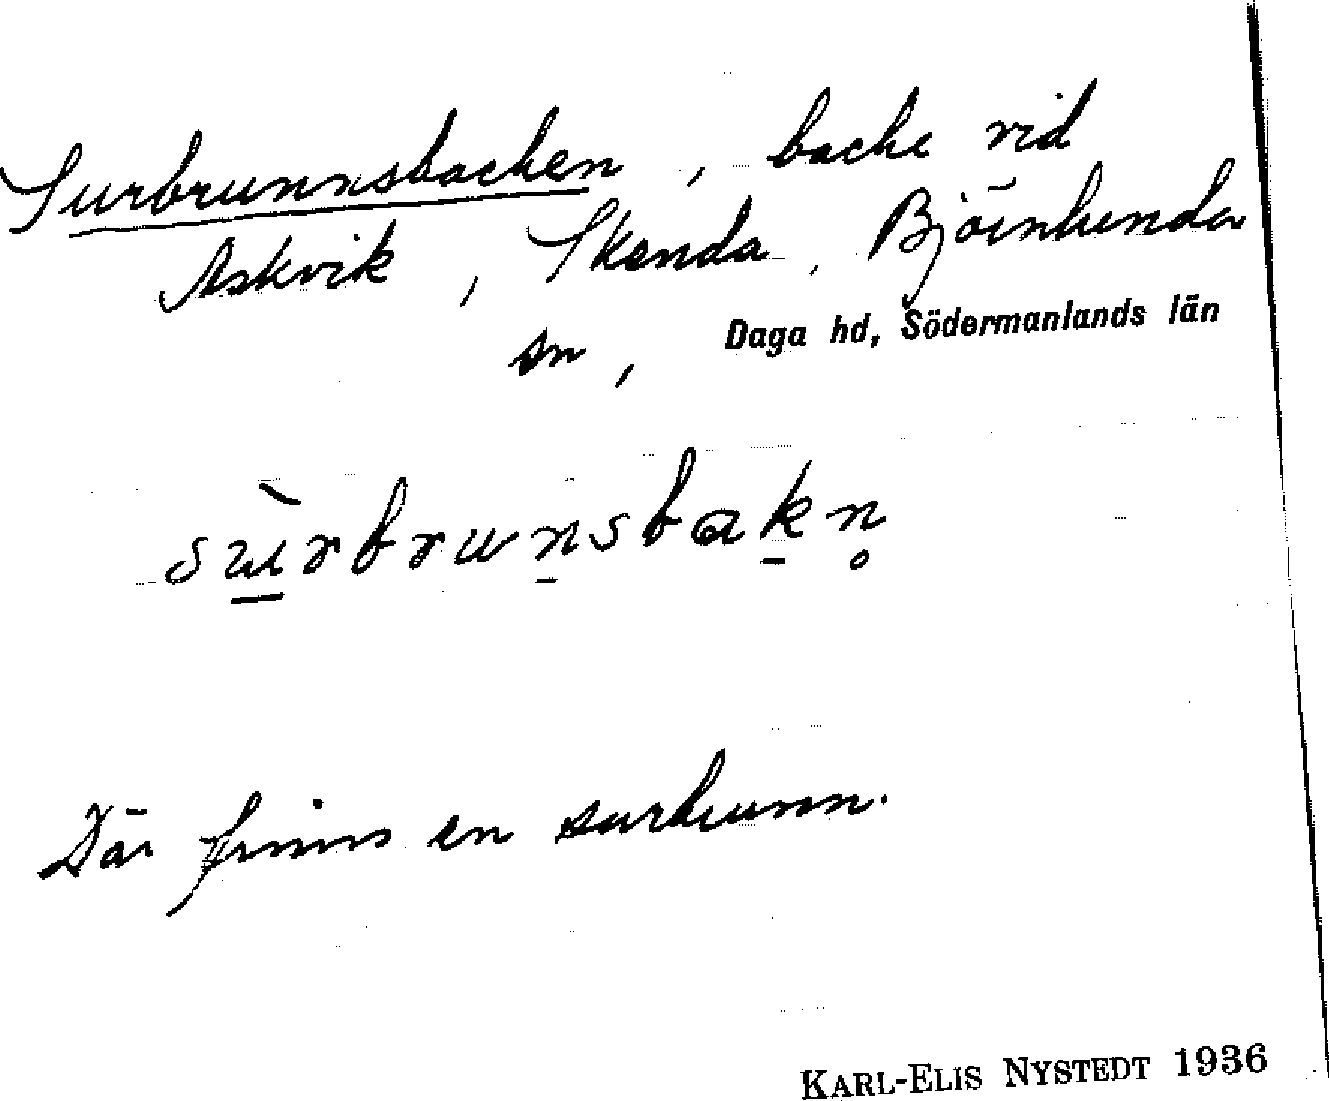 Surbrunnsbacken, backe vid
Askvik, Skenda, Björnlunda
sn, Daga hd, Södermanlands län
sùrbrunsbakn̥
Där finns en surbrunn.
KARL-ELIS NYSTEDT 1936